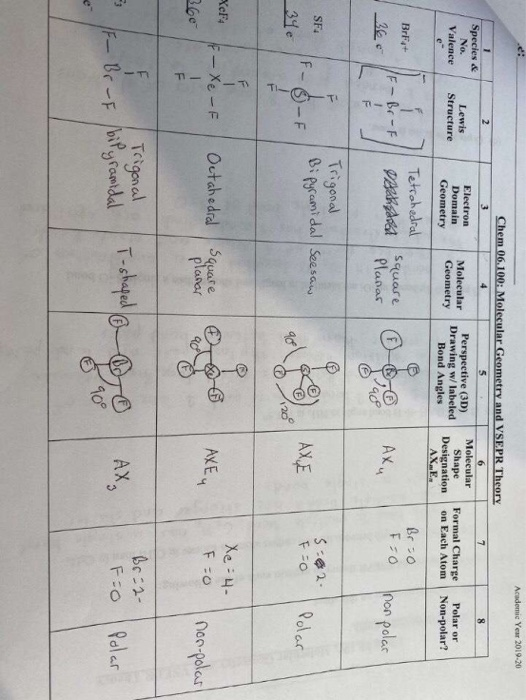 e:
Academic Year 2019-20
Chem 06.100: Molecular Geometry and VSEPR Theory
1
2
3
4
5
6
7
8
Species &
No.
Valence
e⁻
Lewis
Structure
Electron
Domain
Geometry
Molecular
Geometry
Perspective (3D)
Drawing w/ labeled
Bond Angles
Molecular
Shape
Designation
AXₘEₙ
Formal Charge
on Each Atom
Polar or
Non-polar?
BrF₄+
36 e⁻
F
F - Br - F
F
Tetrahedral
square
planar
F
F Br F
F
90°
AX₄
Br = 0
F = 0
non polar
SF₄
34 e⁻
F
F - S - F
F
Trigonal
Bipyramidal
Seesaw
F
S F
F
F
90°
120°
AX₄E
S = 2-
F = 0
Polar
XeF₄
36 e⁻
F
F - Xe - F
F
Octahedral
Square
planar
F
F Xe F
F
90°
AXE₄
Xe = 4-
F = 0
non-polar
e⁻
F
F - Br - F
Trigonal
bipyramidal
T-shaped
F Br F
F
90°
AX₃
Br = 2-
F = 0
Polar